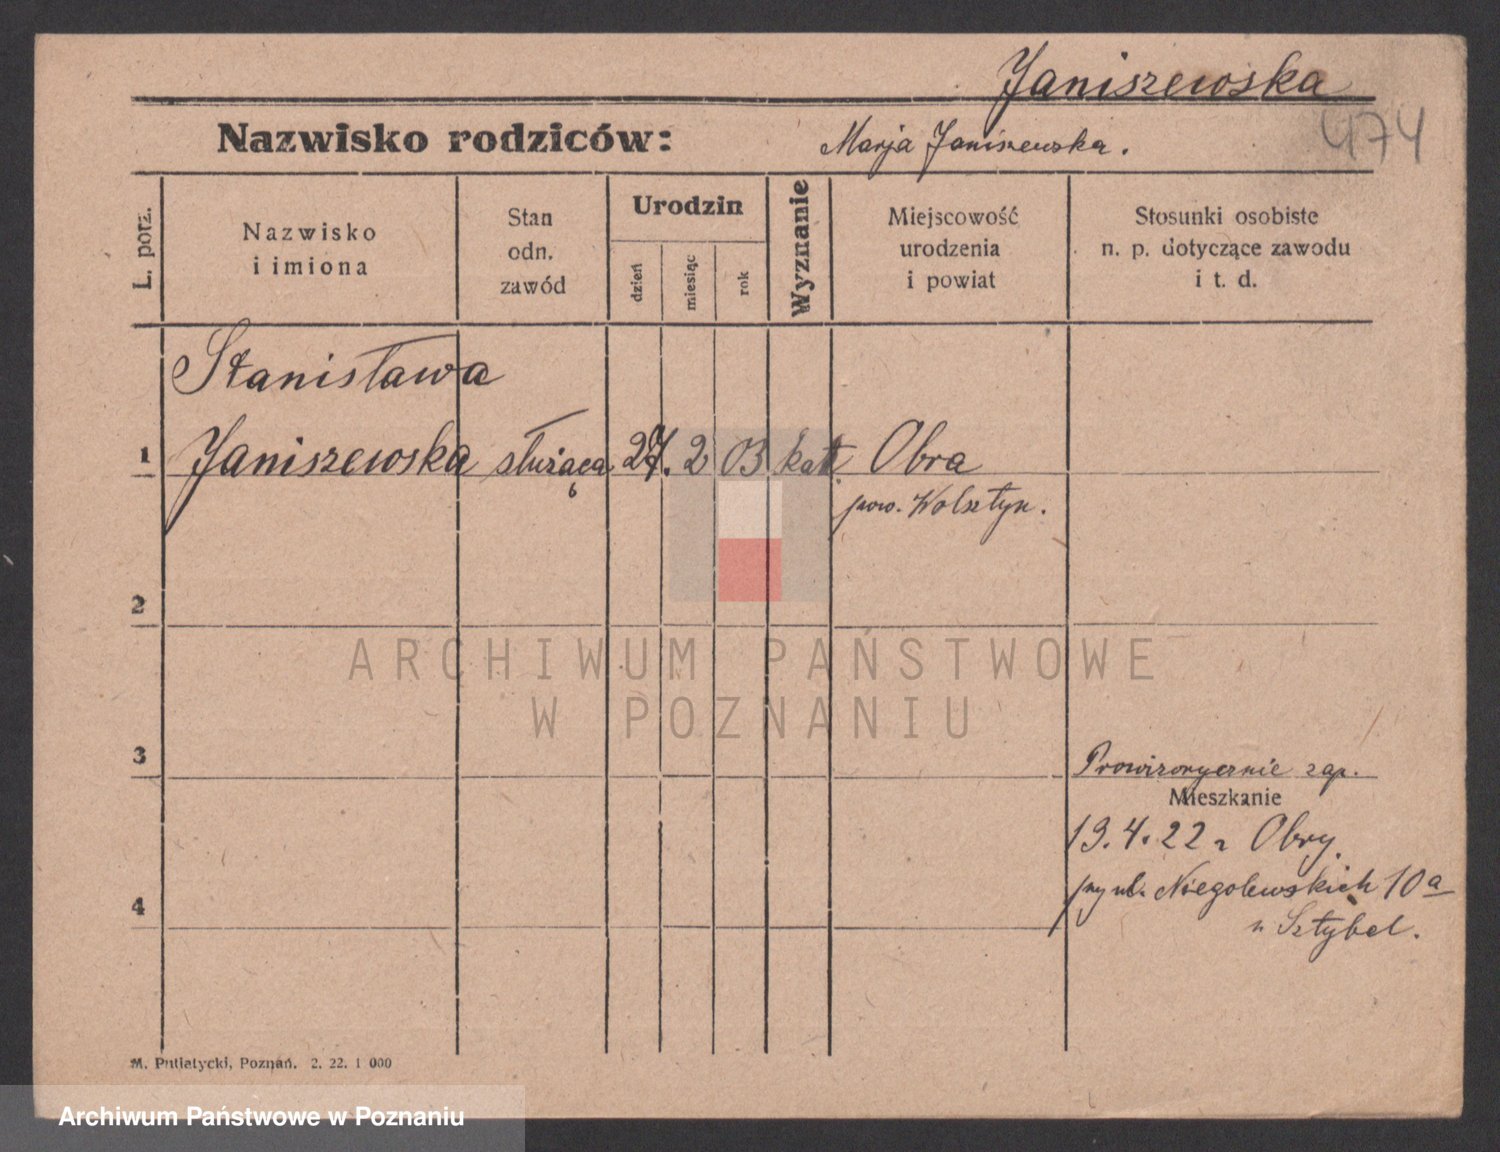 Janiszewska
Nazwisko rodziców: Marja Janiszewska.
474
L. porz.
Nazwisko
i imiona
Stan
odn.
zawód
Urodzin
dzień
miesiąc
rok
Wyznanie
Miejscowość
urodzenia
i powiat
Stosunki osobiste
n. p. dotyczące zawodu
i t. d.
Stanisława
1 Janiszewska służąca 27. 2 03 kat. Obra
pow. Wolsztyn.
2
ARCHIWUM PAŃSTWOWE
W POZNANIU
3
Prowizorycznie zap.
Mieszkanie
19.4.22 z Obry.
przy ul. Niegolewskich 10a
4
u Sztybel.
M. Putiatycki, Poznań. 2. 22. 1 000
Archiwum Państwowe w Poznaniu